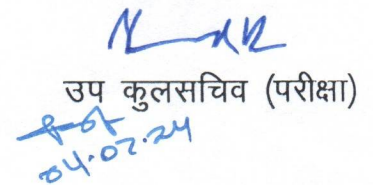 उप कुलसचिव (परीक्षा)
04.07.24